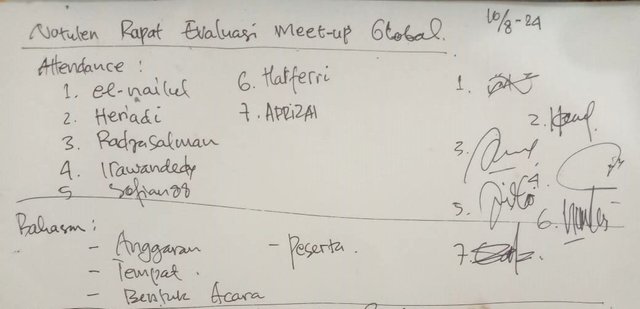 Notulen Rapat Evaluasi Meet-up Global.
10/8-24
Attendance :
1. el-nailul
2. Heriadi
3. Radjasalman
4. Irawandedy
5 Sofian88
6. Hatferri
7. APRIZAL
1.
2.
3.
4.
5.
6.
7.
Bahasan :
- Anggaran
- Tempat.
- Bentuk Acara
- Peserta.